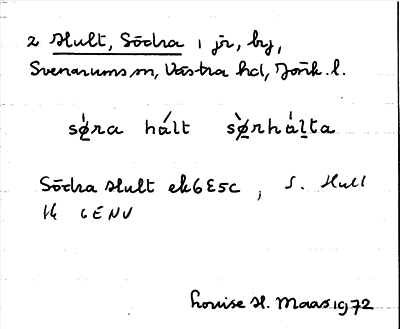 2 Hult, Södra, jr, by,
Svenarums sn, Västra hd, Jönk. l.
sø̀ra hált sø̀rhál̠ta
Södra Hult ek6E5c, S. Hult
14 GENV
Louise H. Maas 1972